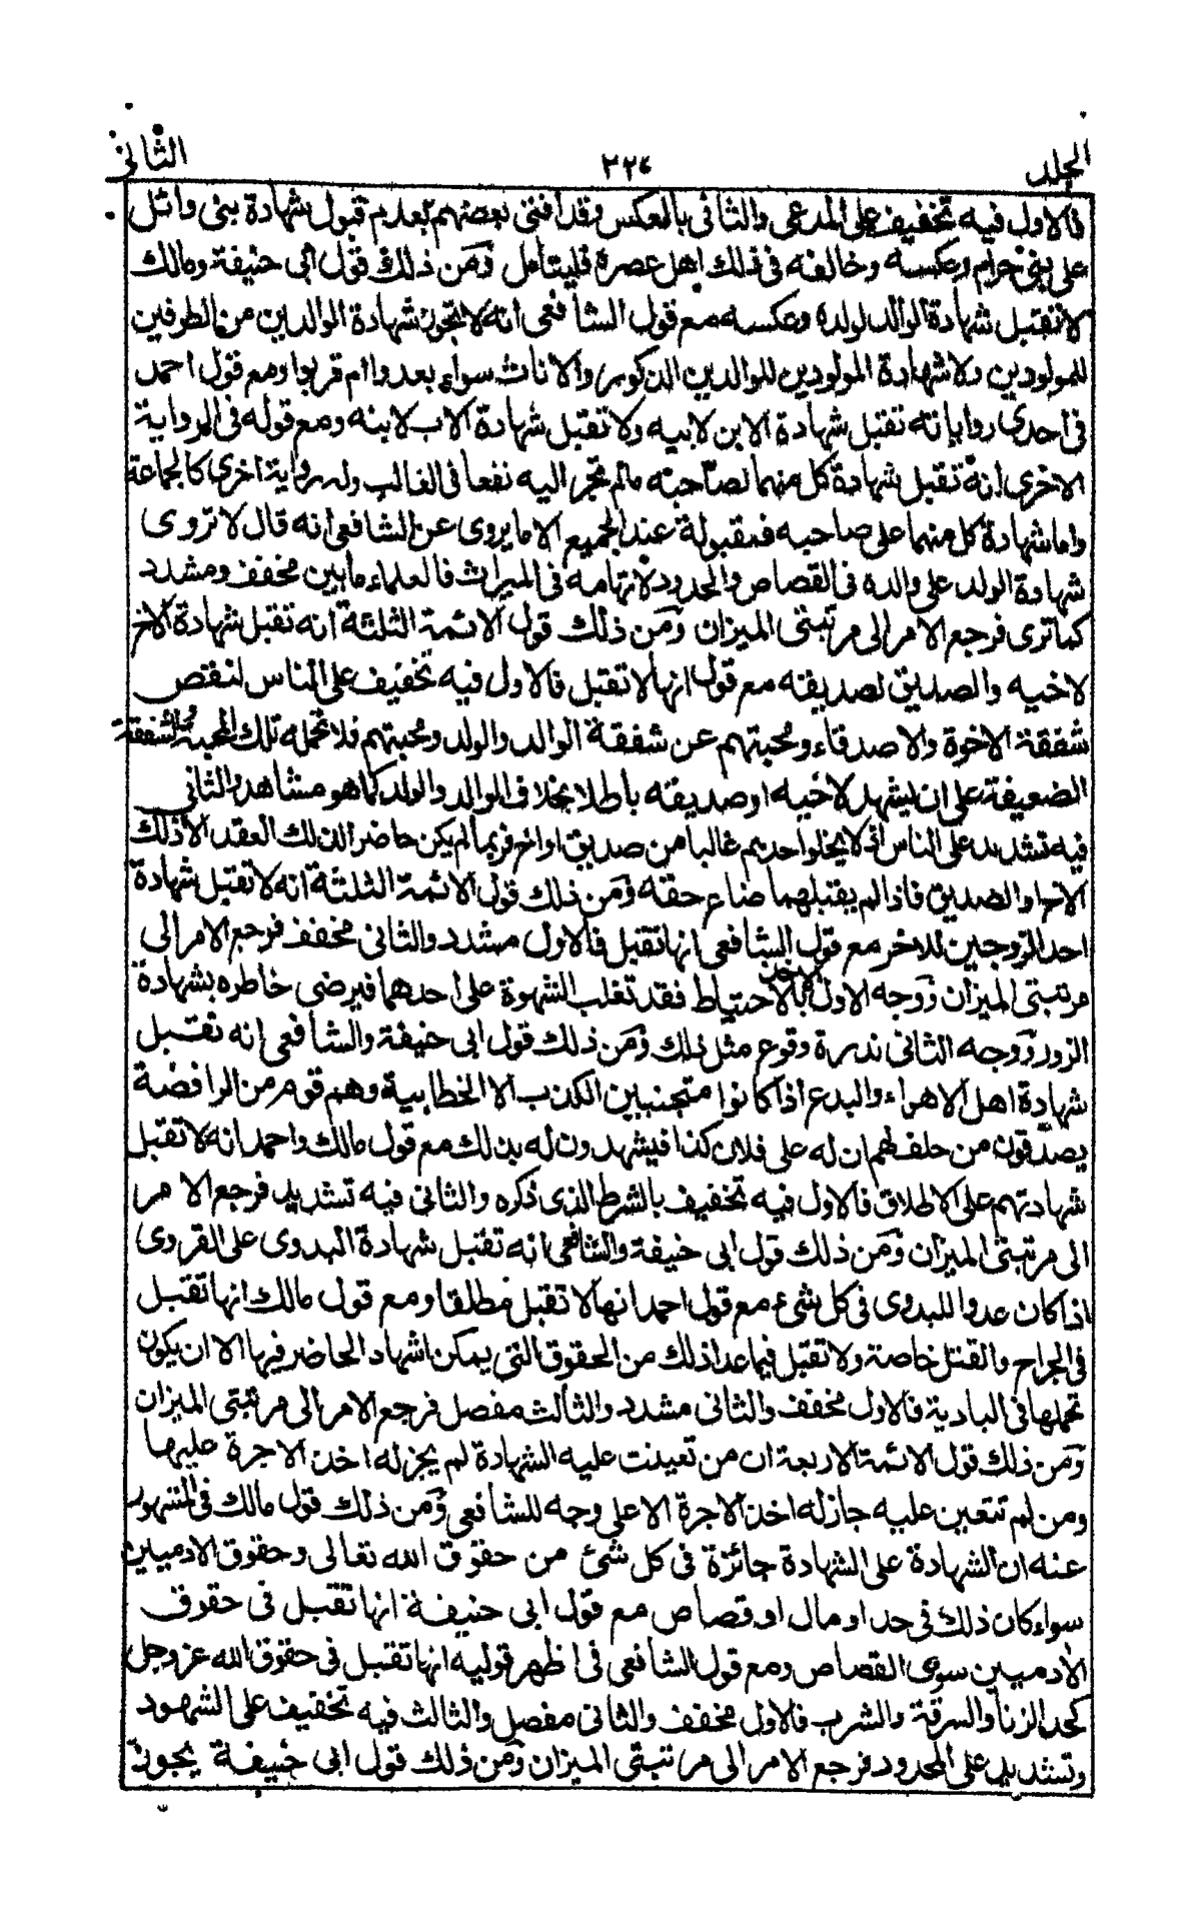 الجلد ٣٢٤ الثانى
فالاول فيه تخفيف على المدعى والثانى بالعكس وقد افتى بعضهم بعدم قبول شهادة بنى وائل
على بنى حرام وعكسه وخالفه فى ذلك اهل عصره فليتأمل ومن ذلك قول ابى حنيفة ومالك
لا تقبل شهادة الوالد لولده وعكسه مع قول الشافعى انه لا تجوز شهادة الوالدين من الطرفين
للمولودين ولا شهادة المولودين للوالدين الذكور والاناث سواء بعدوا ام قربوا ومع قول احمد
فى احدى رواياته تقبل شهادة الابن لابيه ولا تقبل شهادة الاب لابنه ومع قوله فى الرواية
الاخرى انه تقبل شهادة كل منهما لصاحبه مالم تجر اليه نفعا فى الغالب وله رواية اخرى كالجماعة
واما شهادة كل منهما على صاحبه فمقبولة عند الجميع الا ما يروى عن الشافعى انه قال لا تروى
شهادة الولد على والده فى القصاص والحدود لاتهامه فى الميراث فالعلماء ما بين مخفف ومشدد
كما ترى فرجع الامر الى مرتبتى الميزان ومن ذلك قول الائمة الثلثة انه تقبل شهادة الاخ
لاخيه والصديق لصديقه مع قول انها لا تقبل فالاول فيه تخفيف على الناس لنقص
شفقة الاخوة والاصدقاء ومحبتهم عن شفقة الوالد والولد ومحبتهم فلا تحمله تلك المحبة والشفقة
الضعيفة على ان يشهد لاخيه او صديقه باطلا بخلاف الوالد والولد كما هو مشاهد والثانى
فيه تشديد على الناس اذ لا يخلو احدهم غالبا من صديق او اخ فربما لم يكن حاضر الذلك العقد الا ذلك
الاخ او الصديق فاذا لم يقبلهما ضاع حقه ومن ذلك قول الائمة الثلثة انه لا تقبل شهادة
احد الزوجين للاخر مع قول الشافعى انها تقبل فالاول مشدد والثانى مخفف فرجع الامر الى
مرتبتى الميزان ووجه الاول الاخذ بالاحتياط فقد تغلب الشهوة على احدهما فيرضى خاطره بشهادة
الزور ووجه الثانى ندرة وقوع مثل ذلك ومن ذلك قول ابى حنيفة والشافعى انه تقبل
شهادة اهل الاهواء والبدع اذا كانوا متجنبين الكذب الا الخطابية وهم قوم من الرافضة
يصدقون من حلف لهم ان له على فلان كذا فيشهدون له بذلك مع قول مالك واحمد انه لا تقبل
شهادتهم على الاطلاق فالاول فيه تخفيف بالشرط الذى ذكره والثانى فيه تشديد فرجع الامر
الى مرتبتى الميزان ومن ذلك قول ابى حنيفة والشافعى انه تقبل شهادة البدوى على القروى
اذا كان عدوا للبدوى فى كل شىء مع قول احمد انها لا تقبل مطلقا ومع قول مالك انها تقبل
فى الجراح والقتل خاصة ولا تقبل فيما عدا ذلك من الحقوق التى يمكن اشهاد الحاضر فيها الا ان يكون
تحملها فى البادية فالاول مخفف والثانى مشدد والثالث مفصل فرجع الامر الى مرتبتى الميزان
ومن ذلك قول الائمة الاربعة ان من تعينت عليه الشهادة لم يجز له اخذ الاجرة عليها
ومن لم تتعين عليه جاز له اخذ الاجرة الا على وجه للشافعى ومن ذلك قول مالك فى المشهور
عنه ان الشهادة على الشهادة جائزة فى كل شئ من حقوق الله تعالى وحقوق الادميين
سواء كان ذلك فى حد او مال او قصاص مع قول ابى حنيفة انها تقبل فى حقوق
الادميين سوى القصاص ومع قول الشافعى فى اظهر قوليه انها تقبل فى حقوق الله عز وجل
كحد الزنا والسرقة والشرب فالاول مخفف والثانى مفصل والثالث فيه تخفيف على الشهود
وتشديد على المحدود فرجع الامر الى مرتبتى الميزان ومن ذلك قول ابى حنيفة يجوز